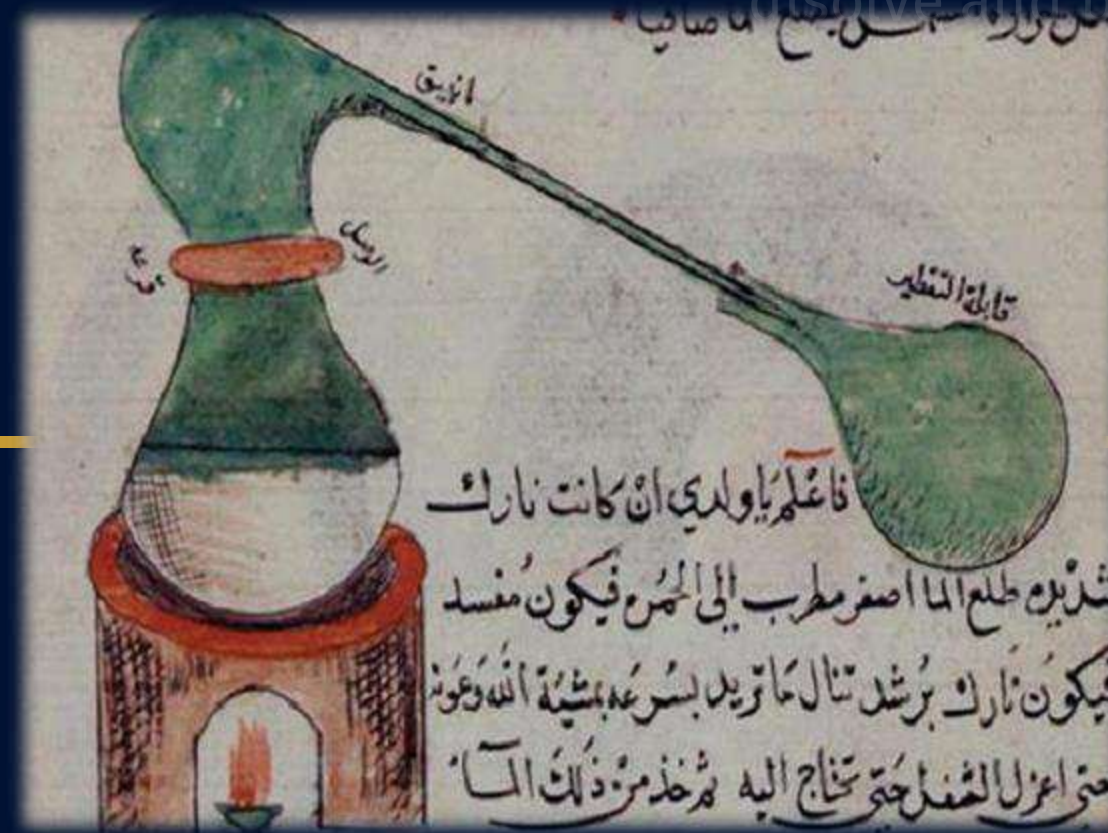 dissolve and
صافيا
انبيق
الوصل
قرعة
قابلة التقطير
فاعْلم يا ولدي انْ كانت نارك
شديده طلع الما اصفر مطرب الى الحُمره فيكون مُفسد
فيكون نارك برُشد تنال مَا تريد بسُرعه بمشيّة الله وَعَونه
حتى اعزل الثفل حَتى تحتاج اليه ثم خذ منْ ذلك المآء